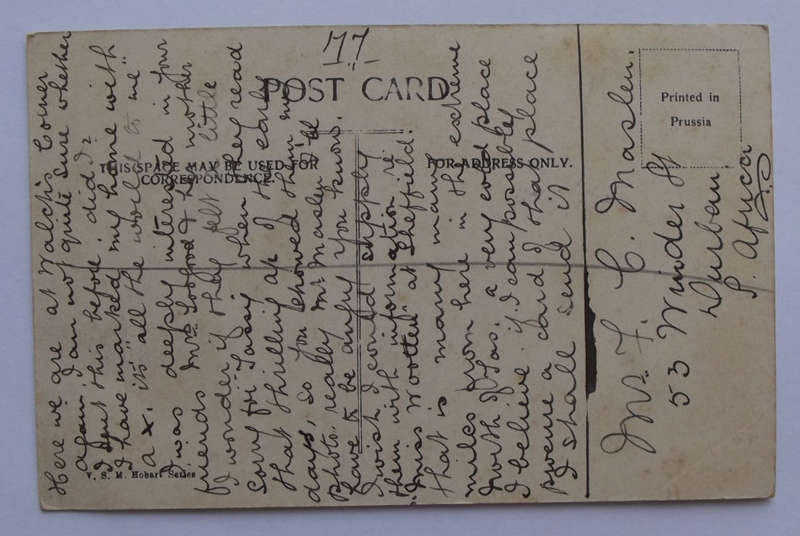 77
POST CARD
THIS SPACE MAY BE USED FOR
CORRESPONDENCE.
FOR ADDRESS ONLY.
Printed in
Prussia
V. S. M. Hobart Series
Here we are at Walch's Corner
again. I am not quite sure whether
I sent this before did I?
I have marked my home with
a x. its "all the world to me"
I was deeply interested in your
friends Mrs & her mother
I wonder if they felt little
sorry for Tassy when they read
that thrilling ap of the early
days, so you showed them my
photo. really Mr Maslen I'll
have to be angry you know.
I wish I could supply
them with information re.
"Miss Wootten" at Sheffield.
that is many many
miles from here in the extreme
North of Tas. a very cold place
I believe. if I can possibly
procure a card of that place
I shall send it
Mr. F. C. Maslen.
53 Winder St
Durban.
S. Africa